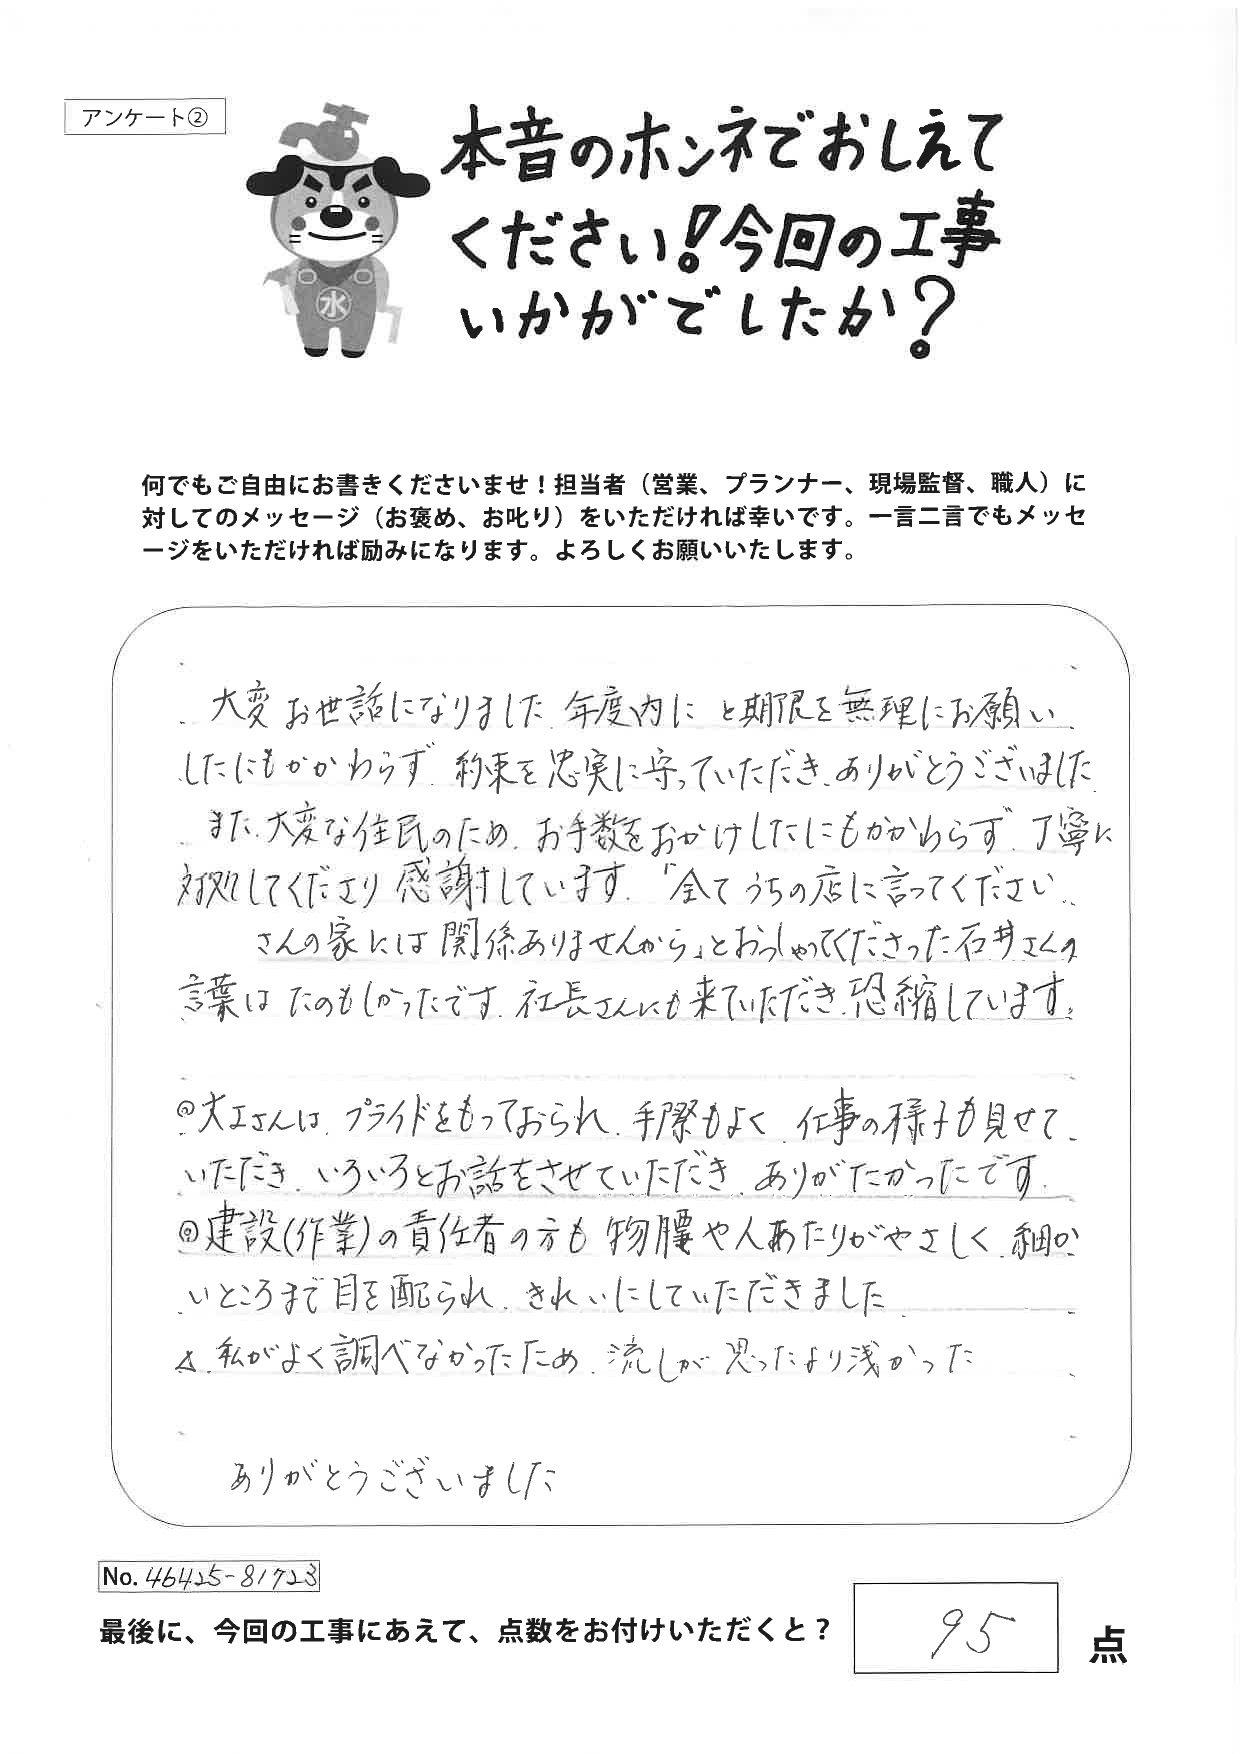 アンケート②
本音のホンネでおしえて
ください！今回の工事
いかがでしたか？
水
何でもご自由にお書きくださいませ！担当者（営業、プランナー、現場監督、職人）に
対してのメッセージ（お褒め、お叱り）をいただければ幸いです。一言二言でもメッセ
ージをいただければ励みになります。よろしくお願いいたします。
大変お世話になりました。年度内にと期限を無理にお願い
したにもかかわらず、約束を忠実に守っていただき、ありがとうございました。
また、大変な住民のため、お手数をおかけしたにもかかわらず、丁寧に
対処してくださり感謝しています。「全てうちの店に言ってください。
さんの家には関係ありませんから」とおっしゃってくださった石井さんの
言葉はたのもしかったです。社長さんにも来ていただき、恐縮しています。
◎大工さんは、プライドをもっておられ、手際もよく、仕事の様子も見せて
いただき、いろいろとお話をさせていただき、ありがたかったです。
◎建設(作業)の責任者の方も物腰や人あたりがやさしく、細か
いところまで目を配られ、きれいにしていただきました
△私がよく調べなかったため、流しが思ったより浅かった
ありがとうございました
No. 46425-81723
最後に、今回の工事にあえて、点数をお付けいただくと？ 95 点